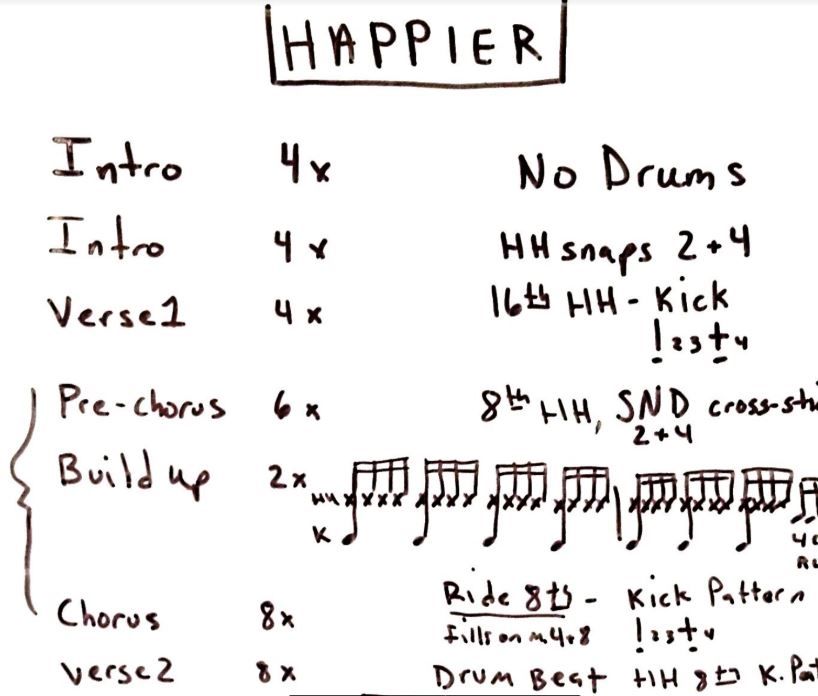 HAPPIER
Intro 4x No Drums
Intro 4x HH snaps 2+4
Verse1 4x 16th HH - Kick
1 2 3 + 4
Pre-chorus 6x 8th HH, SND cross-sti
2+4
Build up 2x HH
K
Chorus 8x Ride 8ths - Kick Pattern
fills on m. 4+8 1 2 3 + 4
Verse2 8x Drum Beat HH 8ths K. Pat